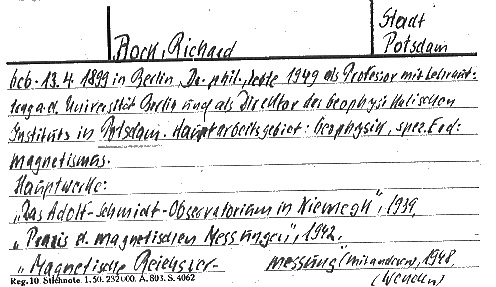 Stadt
Potsdam
Bock, Richard
geb. 13.4.1899 in Berlin, Dr. phil., lebte 1949 als Professor mit Lehrauf-
trag a.d. Universität Berlin und als Direktor des Geophysikalischen
Instituts in Potsdam. Hauptarbeitsgebiet: Geophysik, spez. Erd-
magnetismus.
Hauptwerke:
„Das Adolf-Schmidt-Observatorium in Niemegk", 1939,
„Praxis d. magnetischen Messungen", 1942,
„Magnetische Reichsver- messung" (mit anderen), 1948,
Reg. 10. Stichnote. 1. 50. 232000. A. 803. S. 4062